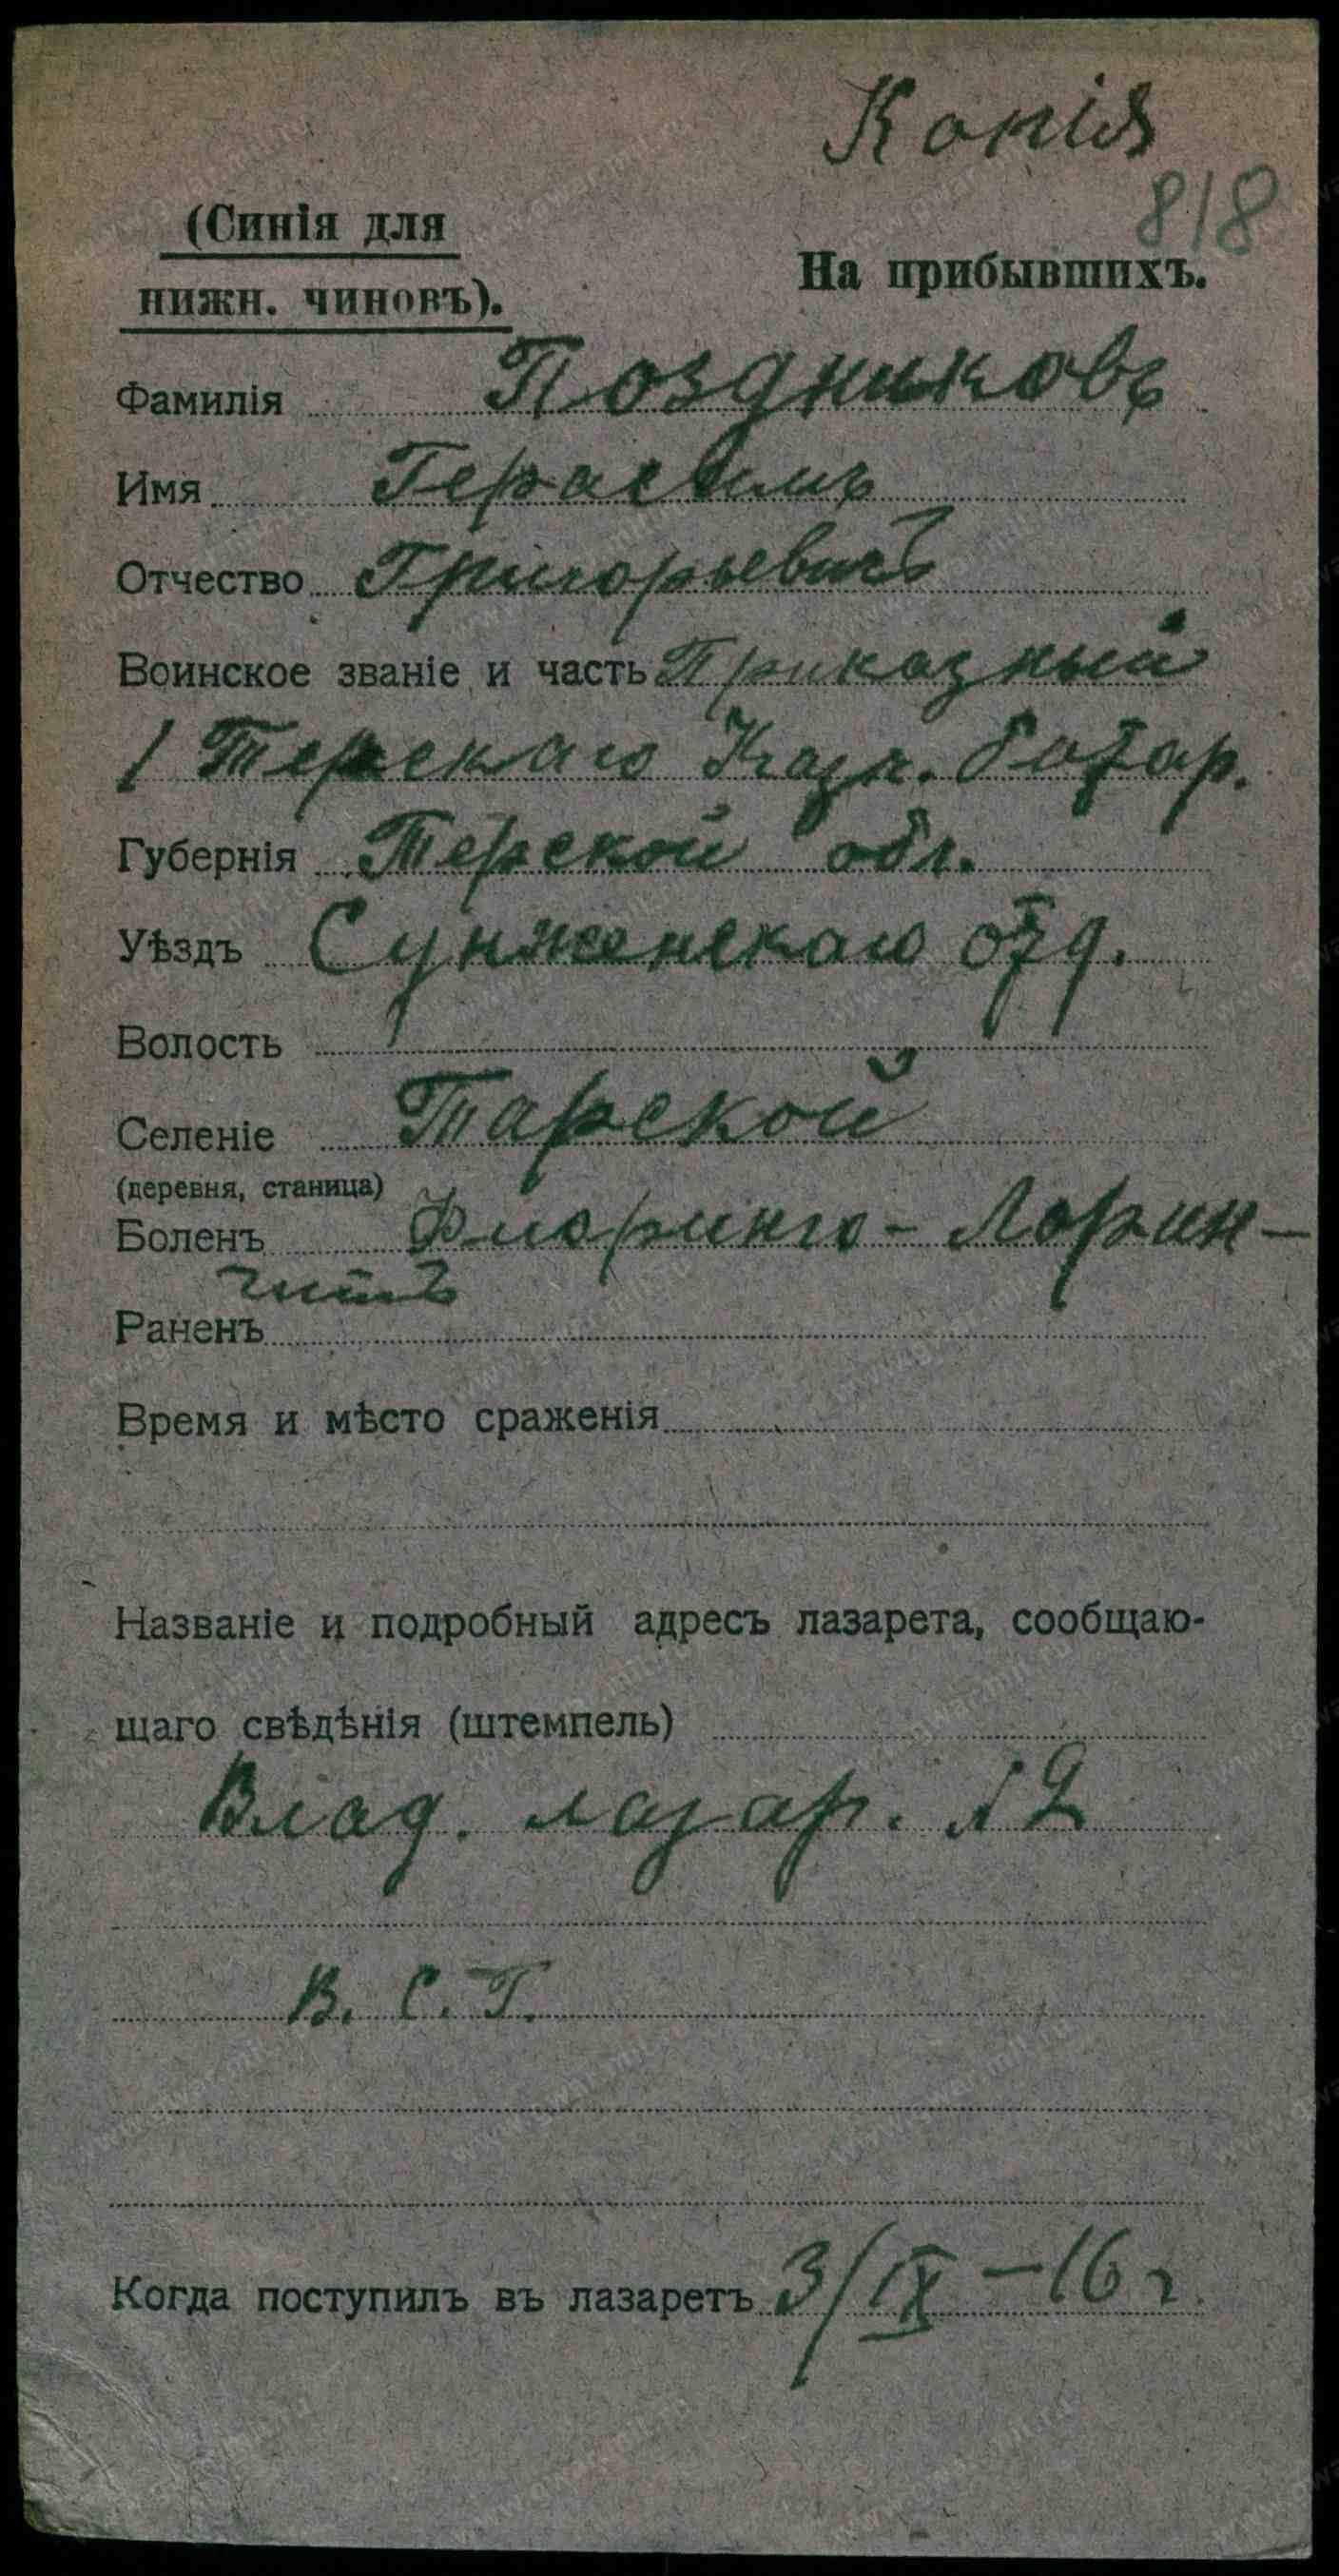 Копія
818
(Синія для
нижн. чиновъ).
На прибывшихъ.
Фамилія Поздниковъ
Имя Герасимъ
Отчество Григорьевичъ
Воинское званіе и часть Приказный
1 Терскаго Каз. батар.
Губернія Терской обл.
Уѣздъ Сунженскаго отд.
Волость
Селеніе Тарской
(деревня, станица)
Боленъ Фиоринго-Лорин-
читъ
Раненъ
Время и мѣсто сраженія
Названіе и подробный адресъ лазарета, сообщаю-
щаго свѣдѣнія (штемпель)
Влад. лазар. № 2
В. С. Г.
Когда поступилъ въ лазаретъ 3/IX-16 г.